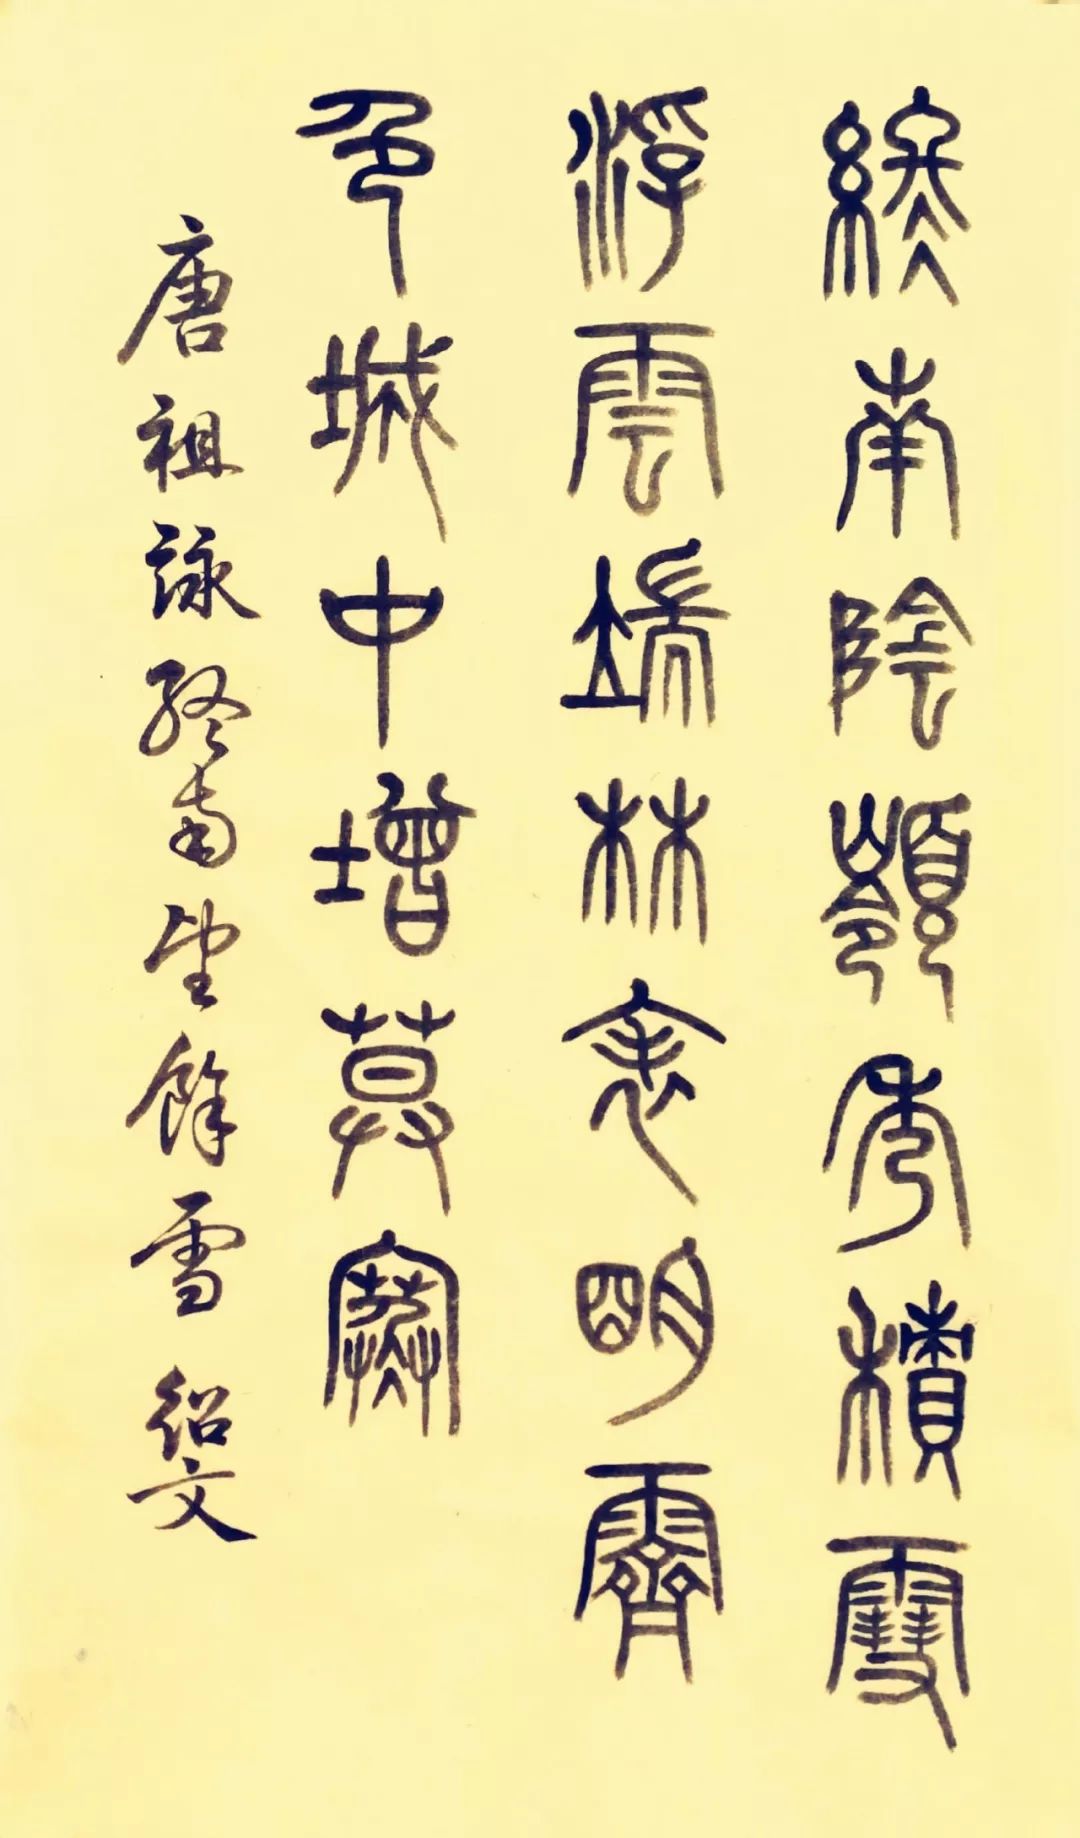 終南陰嶺秀積雪
浮雲端林表明霽
色城中增暮寒
唐祖詠終南望餘雪 紹文